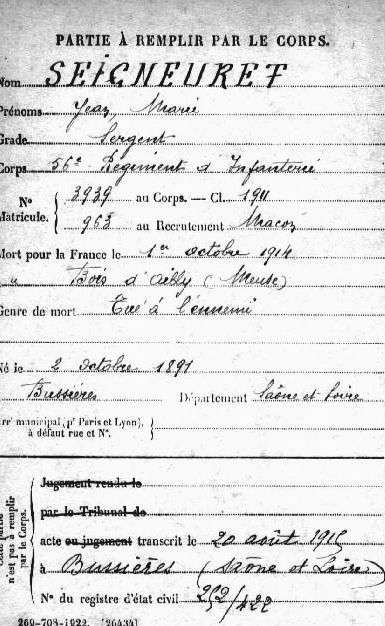 PARTIE À REMPLIR PAR LE CORPS.
Nom SEIGNEURET
Prénoms Jean Marie
Grade Sergent
Corps 56e Régiment d'Infanterie
N° Matricule. { 3939 au Corps. — Cl. 1911
963 au Recrutement Macon
Mort pour la France le 1er octobre 1914
à Bois d'Ailly (Meuse)
Genre de mort Tué à l'ennemi
Né le 2 octobre 1891
Bussières Département Saône et Loire
Arrt municipal (pr Paris et Lyon), à défaut rue et N°. }
Jugement rendu le
par le Tribunal de
acte ou jugement transcrit le 20 août 1915
à Bussières (Saône et Loire)
N° du registre d'état civil 252/422
Cette partie n'est pas à remplir par le Corps.
269-708-1922. [26434]